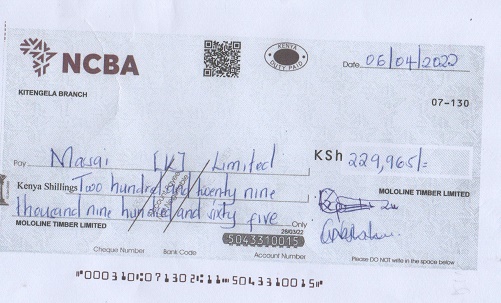 NCBA
KENYA
DUTY PAID
Date 06/04/2022
KITENGELA BRANCH
07-130
Pay Masai [K] Limited KSh 229,965/=
Kenya Shillings Two hundred and twenty nine
thousand nine hundred and sixty five Only
MOLOLINE TIMBER LIMITED
28/03/22
MOLOLINE TIMBER LIMITED
5043310015
Cheque Number Bank Code Account Number
Please DO NOT write in the space below
"000310:071302:11"5043310015"